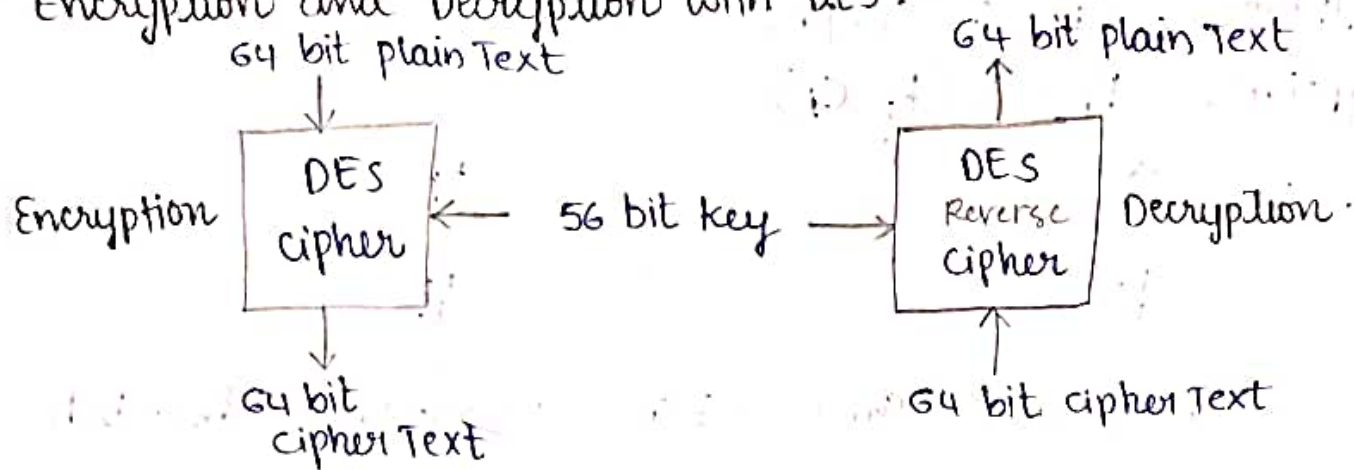 Encryption and Decryption with DES.
64 bit plain Text
DES
cipher
Encryption
64 bit
cipher Text
56 bit key
64 bit plain Text
DES
Reverse
cipher
Decryption.
64 bit cipher Text